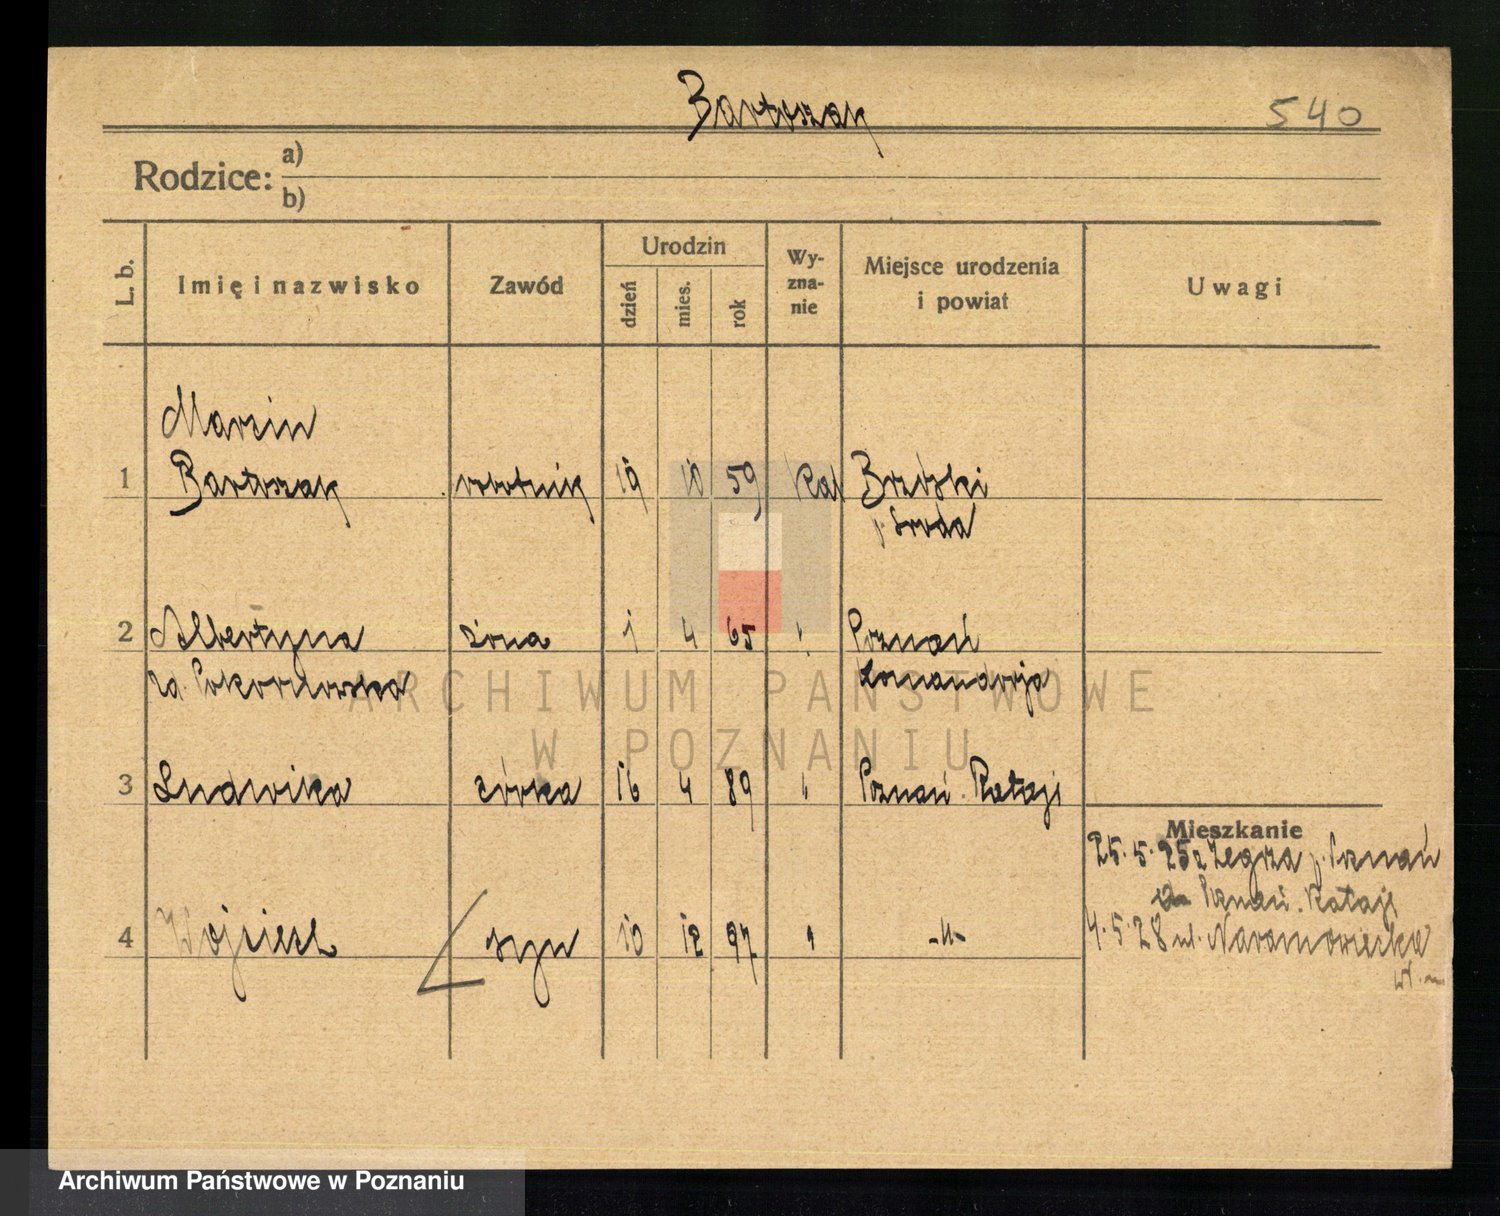 Bartoszak
540
Rodzice:
a)
b)
L. b.
Imię i nazwisko
Zawód
Urodzin
dzień
mies.
rok
Wy-
zna-
nie
Miejsce urodzenia
i powiat
Uwagi
Marcin
1 Bartoszak robotnik 19 10 59 Kat Brzóski
p. Środa
2 Albertyna żona 1 4 65 " Poznań
Komandorja
3 Ludwika córka 16 4 89 " Poznań Rataje
Mieszkanie
25.5.25 z Żegrza p. Poznań
Poznań. Rataje
4 Wojciech syn 10 12 97 " -"-
4.5.28 ul. Naramowicka
ARCHIWUM PAŃSTWOWE
W POZNANIU
Archiwum Państwowe w Poznaniu